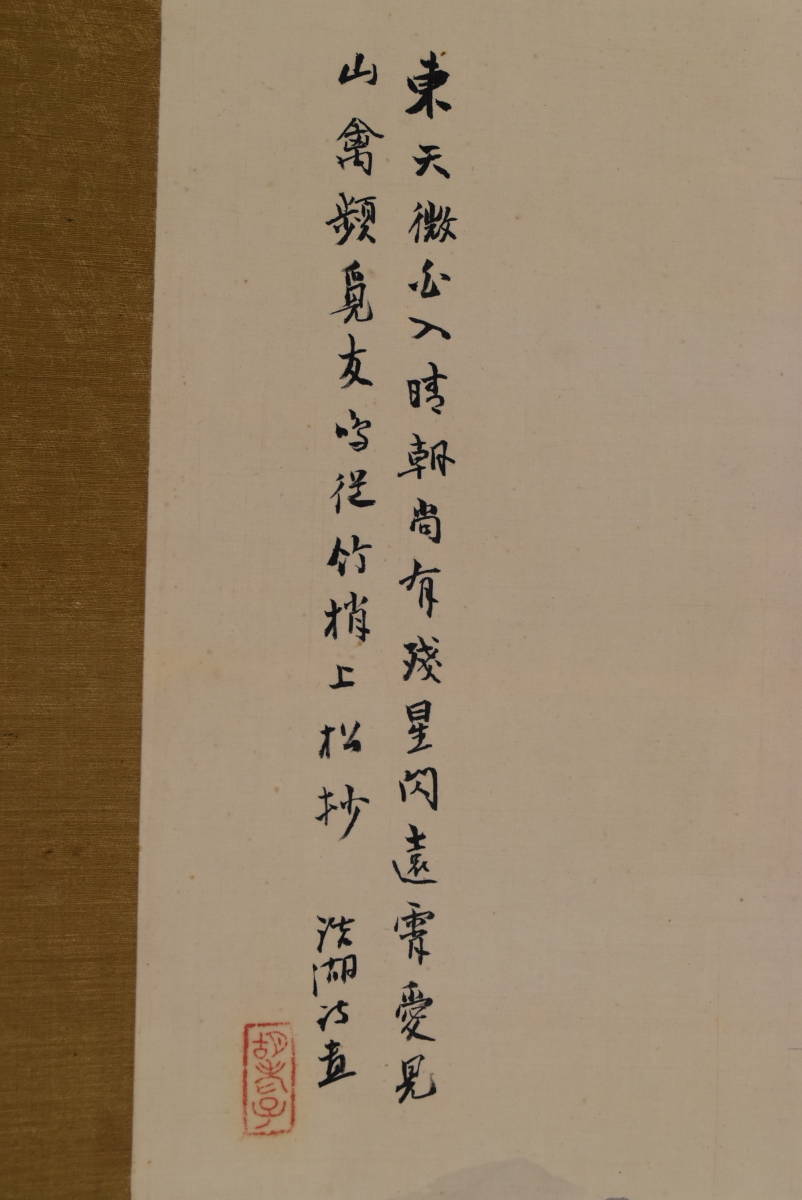 東天微白入晴朝尚有殘星閃遠霄愛見
山禽頻覓友鳴從竹梢上松抄
湖诗畫
胡